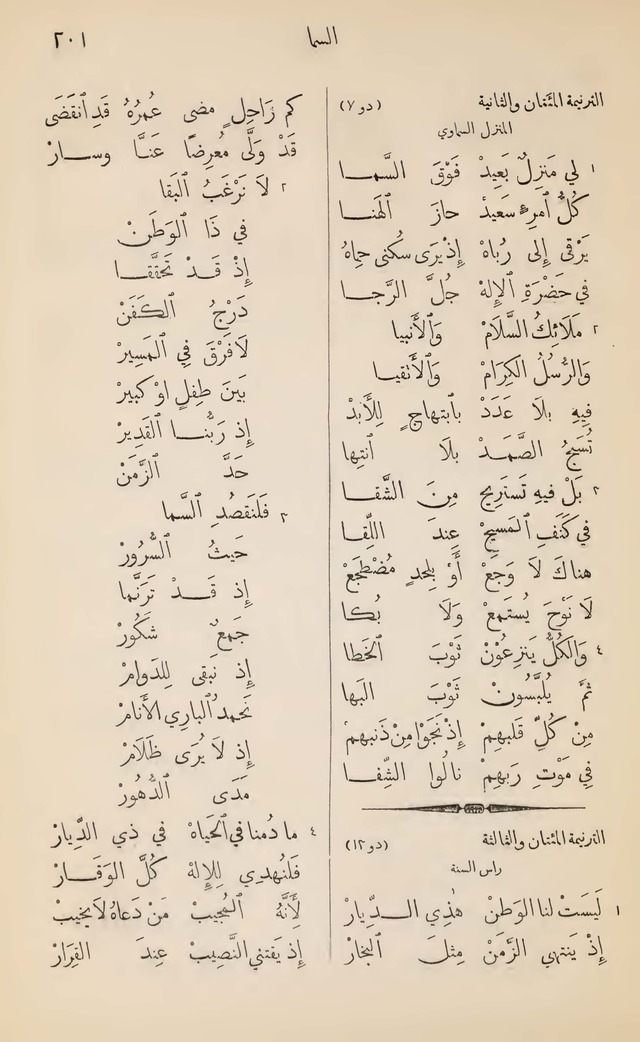 السما
٢٠١
الترنيمة المئتان والثانية (دو ٧)
المنزل السماوي
١ لي مَنزِلٌ بَعِيدْ فَوْقَ السَّمـــا
كُلُّ ٱمرِءٍ سَعِيدْ حازَ ٱلهَنـــا
يَرْقى إِلى رُباهْ إِذْ يَرَى سُكنى حِماهُ
في حَضْرَةِ ٱلإِلهْ جُلَّ الرَّجـــا
٢ مَلَائِكُ السَّلَامْ وَٱلأَنبيا
وَالرُّسْلُ الكِرَامْ وَٱلأَنقيـــا
فِيهِ بِلاَ عَدَدْ بٱبتهاجٍ لِلأَبدْ
تُسَبِّحُ الصَّمَـــدْ بلَا ٱنتِها
٣ بَلْ فيهِ تَستَرِيح مِنَ الشَّقـــا
في كَنَفِ ٱلمَسِيحْ عِندَ اللِّقـــا
هناكَ لاَ وَجَعْ أَوْ بِلحدٍ مُضْطَجَعْ
لاَ نَوْحَ يُستَمَعْ وَلاَ بُكـــا
٤ وَالكُلُّ يَنزِعُونْ ثَوْبَ ٱلخَطا
ثمَّ يُلبَّسُونْ ثَوْبَ البَها
مِنْ كُلِّ قَلبِهِمْ إِذْ نَجَوْا مِنْ ذَنبِهم
فِي مَوْتِ رَبِهِمْ نالُوا الشِّفـــا
الترنيمة المئتان والثالثة (دو ١٢)
راس السنة
١ لَيسَتْ لنا الوَطَنْ هٰذِي الـــدِّيارْ
إِذْ يَنتهي الزَّمَنْ مِثلَ ٱلبُخارْ
كم رَاحِلٍ مضى عُمرُهُ قَدِ ٱنقَضَى
قَدْ وَلَّى مُعرِضًا عَنَّا وســـارْ
٢ لاَ نَرْغَبُ ٱلبَقا
في ذَا الوَطَنْ
إِذْ قَـــدْ تَحَقَّقـــا
دَرْجُ ٱلكَفَنْ
لاَفَرْقَ فِي ٱلمَسِيرْ
بَينَ طِفلٍ اوْ كبيرْ
إِذ رَبُّنـــا القَدِيرْ
حَدَّ الزَّمَنْ
٣ فَلنَقصُدِ ٱلسَّما
حَيثُ السُّرُورْ
إِذ قَـــدْ تَرَنَّما
جَمعٌ شَكُورْ
إِذ نَبقى لِلدَوامْ
نَحمدُ ٱلباري الأَنامْ
إِذ لاَ يُرَى ظَلَامْ
مَدَى الدُّهُورْ
٤ ما دُمنا في ٱلحَياةْ في ذي الدِّيارْ
فَلنُهدِي لِلإِلهْ كُلَّ الوَقـــارْ
لِأَنَّهُ ٱلمُجِيبْ مَنْ دَعاهُ لاَ يخيبْ
إِذ يَقتني النَّصِيبْ عِندَ القَرارْ